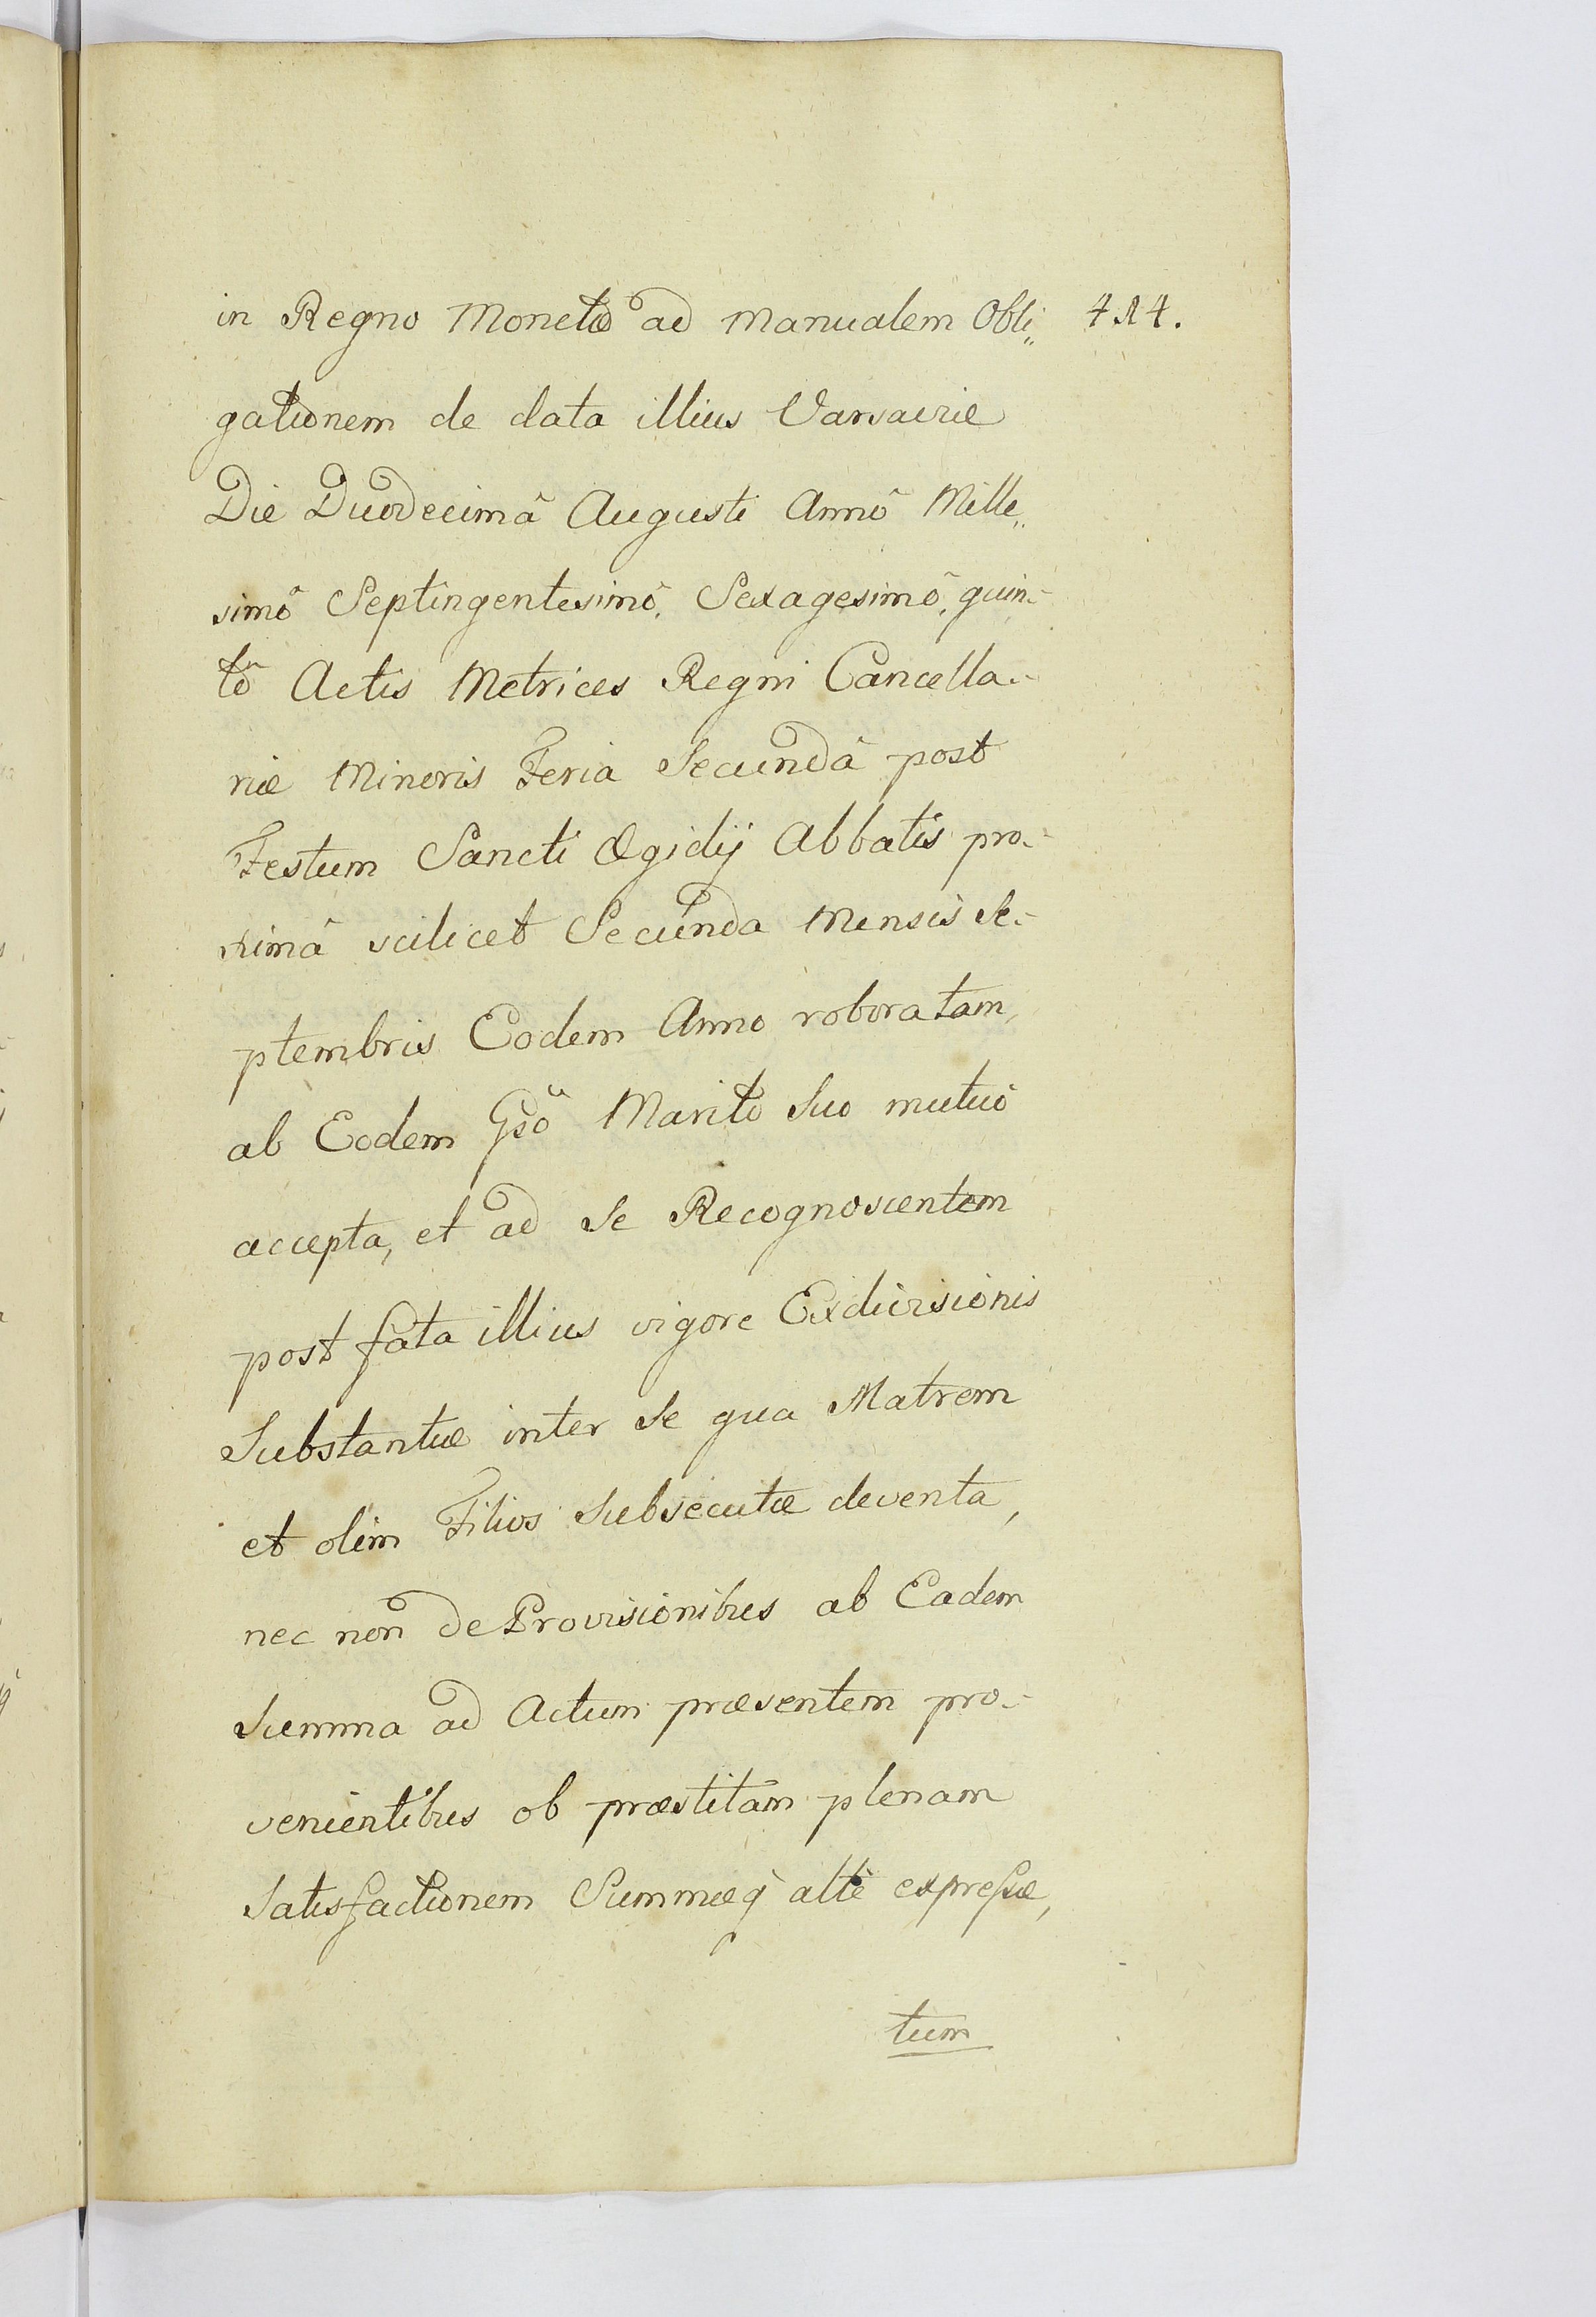 in Regno Monetæ ad Manualem Obli„ 414.
gationem de data illius Varsaviæ
Die Duodecimâ Augusti Annô Mille„
simô Septingentesimô, Sexagesimô, quin-
tô Actis Metrices Regni Cancella-
riæ Minoris Feria Secundâ post
Festum Sancti Ægidij Abbatis pro-
ximâ scilicet Secunda Mensis Se-
ptembris Eodem Anno roboratam,
ab Eodem Gsô Marito Suo mutuò
accepta, et ad Se Recognoscentem
post fata illius vigore Exdivisionis
Substantiæ inter Se qua Matrem
et olim Filios Subsecutæ deventa,
nec non de Provisionibus ab Eadem
Summa ad Actum præsentem pro-
venientibus ob præstitam plenam
Satisfactionem Summæq̀ altè expreſsæ,
tum